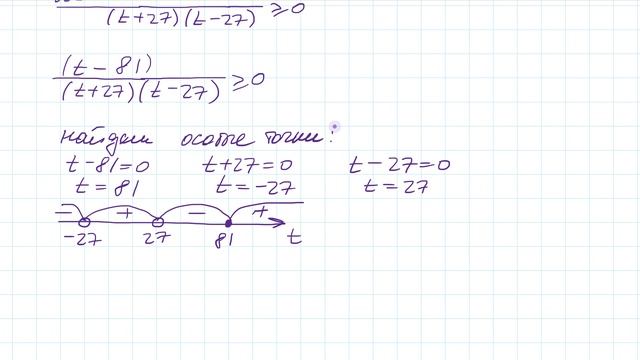 (t+27)(t-27) ≥0
(t-81)
(t+27)(t-27) ≥0
найдем особые точки:
t-81=0 t+27=0 t-27=0
t=81 t=-27 t=27
- + - +
-27 27 81 t